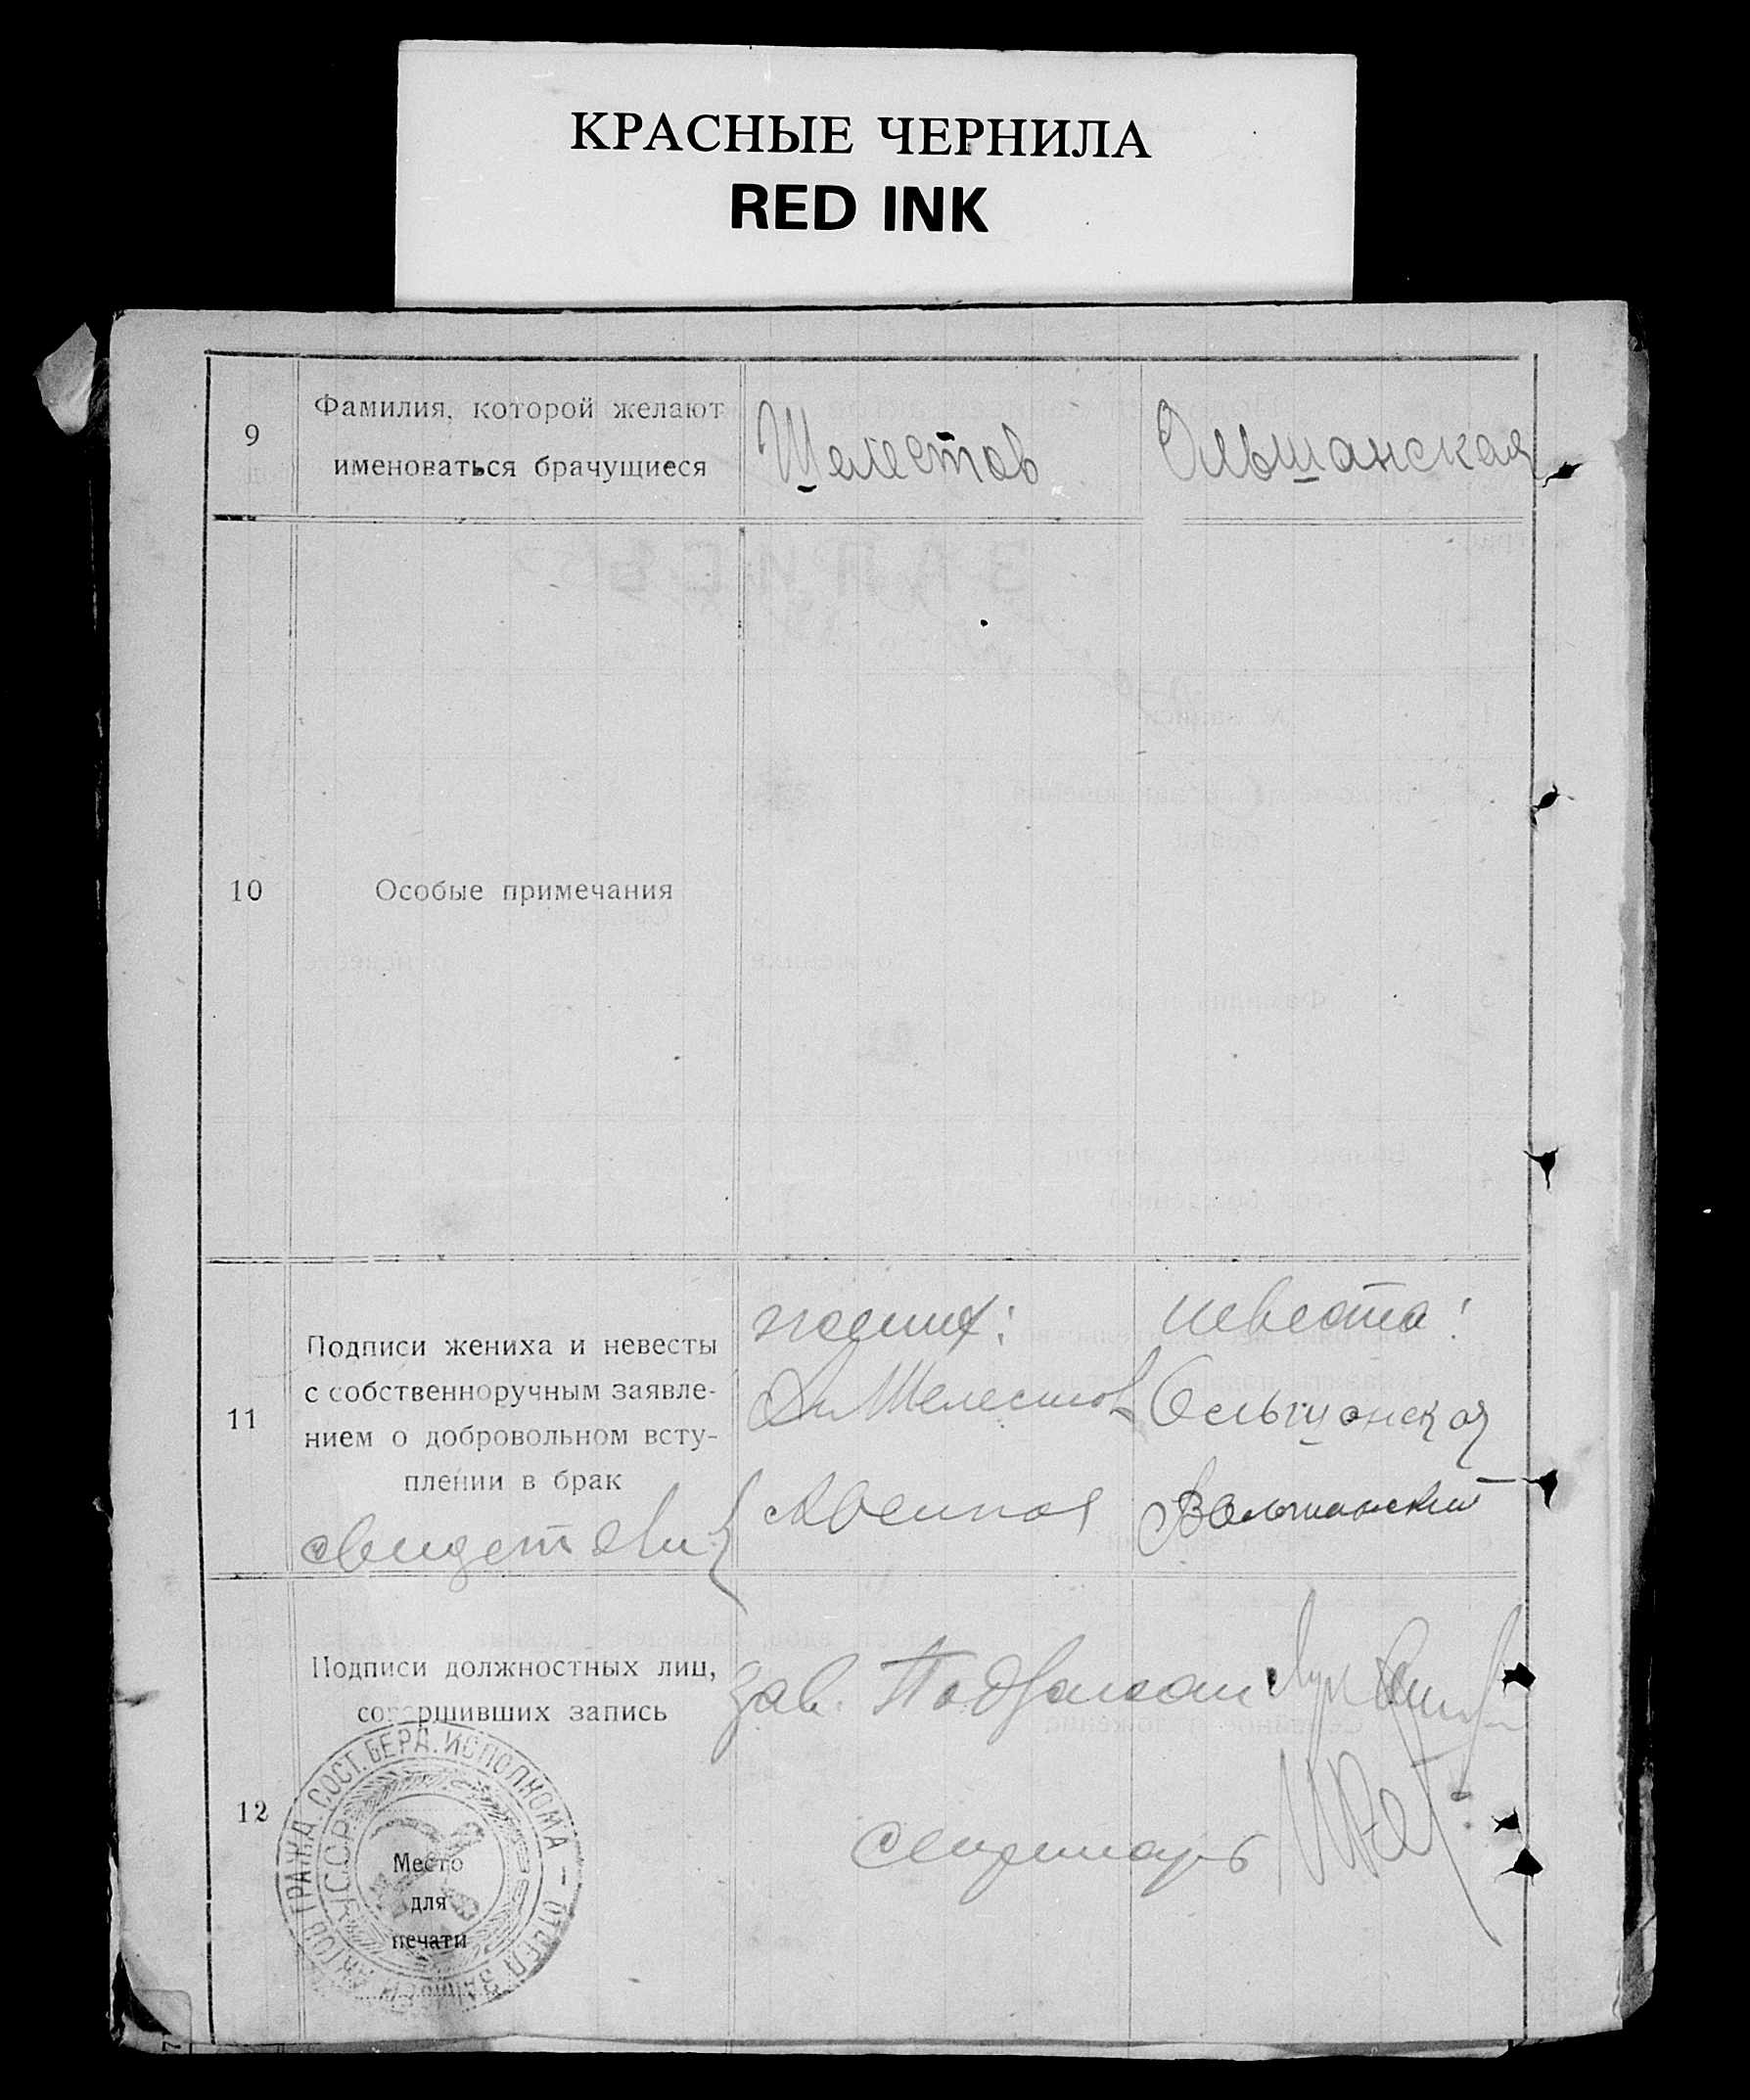 КРАСНЫЕ ЧЕРНИЛА
RED INK
9
Фамилия, которой желают
именоваться брачущиеся
Шелестов
Ольшанская
10
Особые примечания
11
Подписи жениха и невесты
с собственноручным заявле-
нием о добровольном всту-
плении в брак
свидетели
жених:
Шелестов
невеста:
Ольшанская
12
Подписи должностных лиц,
совершивших запись
зав.
секретарь
ГРАЖД. СОСТ. БЕРД. ИСПОЛКОМА - ОТДЕЛ ЗАПИСИ АКТОВ
УССР
Место
для
печати